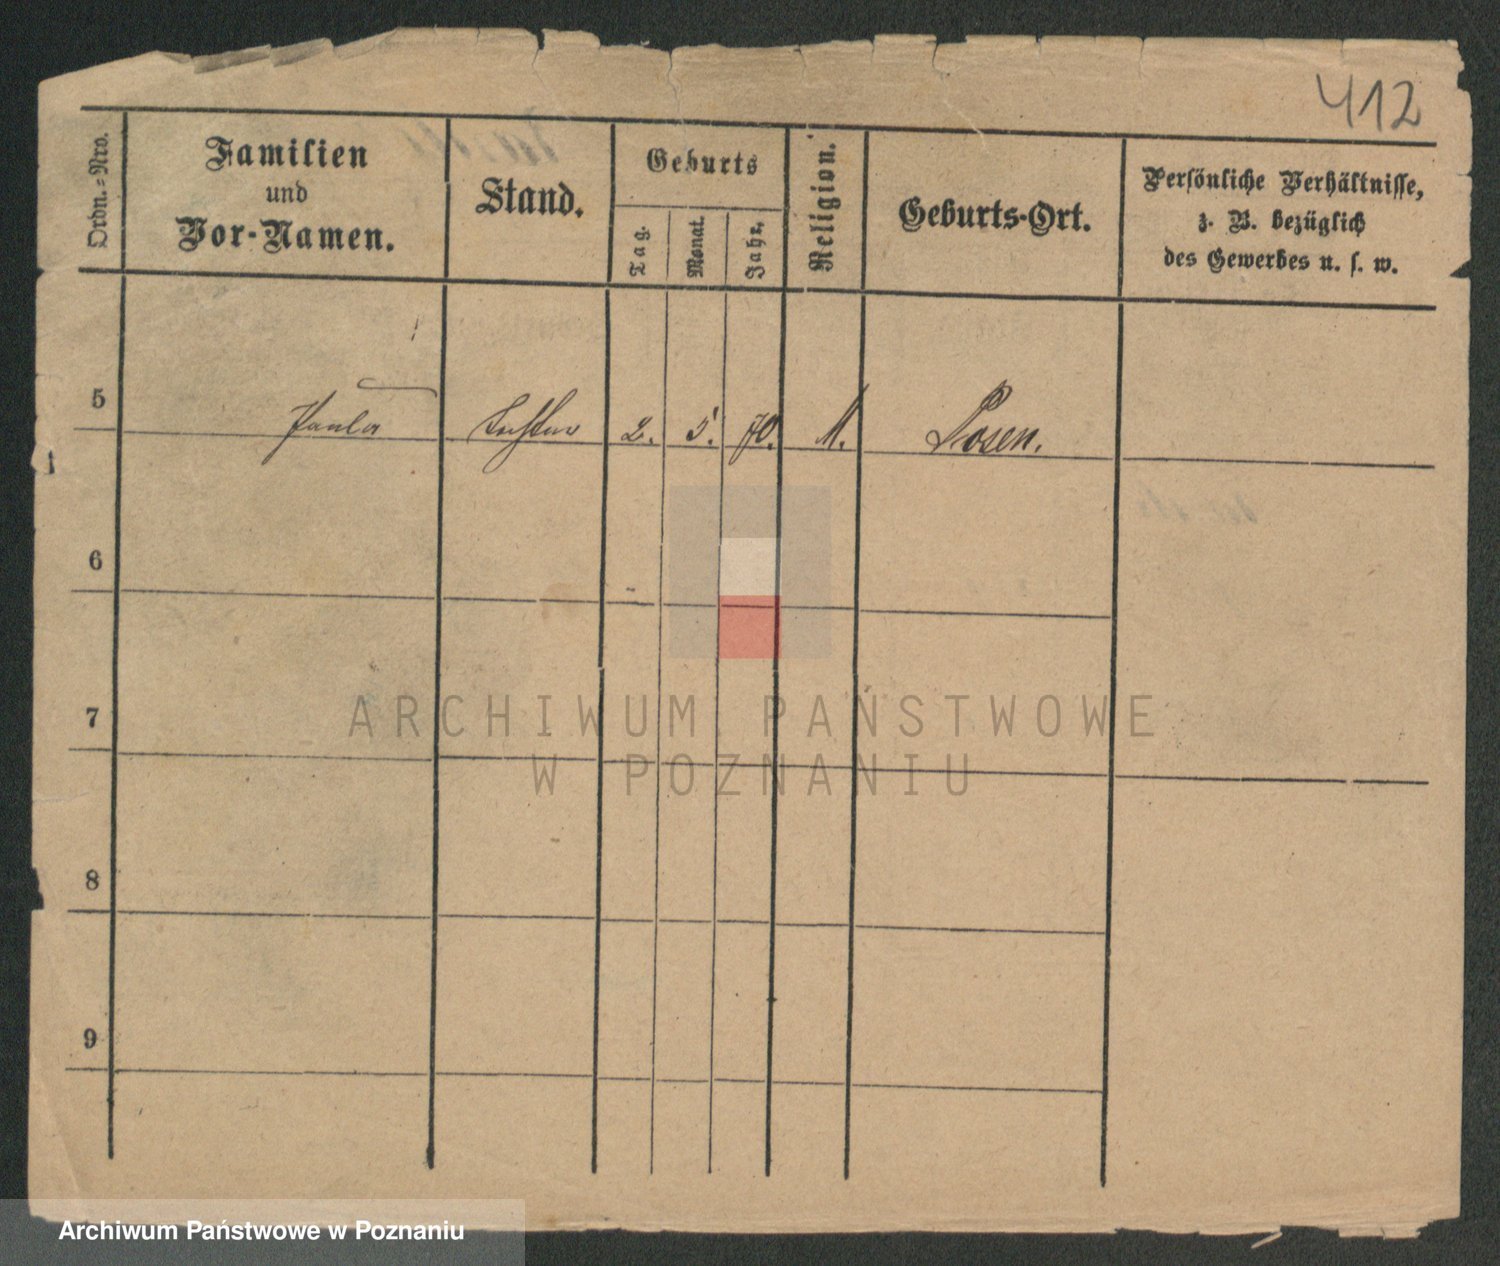 412
Ordn.-Nro.
Familien
und
Vor-Namen.
Stand.
Geburts
Tag.
Monat.
Jahr.
Religion.
Geburts-Ort.
Persönliche Verhältnisse,
z. B. bezüglich
des Gewerbes u. s. w.
5 Paula Tochter 2. 5. 70. M. Posen.
6
7
8
9
ARCHIWUM PAŃSTWOWE
W POZNANIU
Archiwum Państwowe w Poznaniu